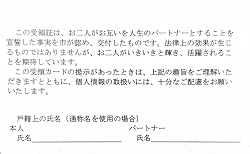 この受領証は、お二人がお互いを人生のパートナーとすることを
宣誓した事実を市が認め、交付したものです。法律上の効果が生じ
るものではありませんが、お二人がいきいきと輝き、活躍されるこ
とを期待しています。
この受領カードの提示があったときは、上記の趣旨をご理解いた
だきますとともに、個人情報の取扱いには、十分なご配慮をお願い
いたします。
戸籍上の氏名（通称名を使用の場合）
本人 パートナー
氏名 氏名